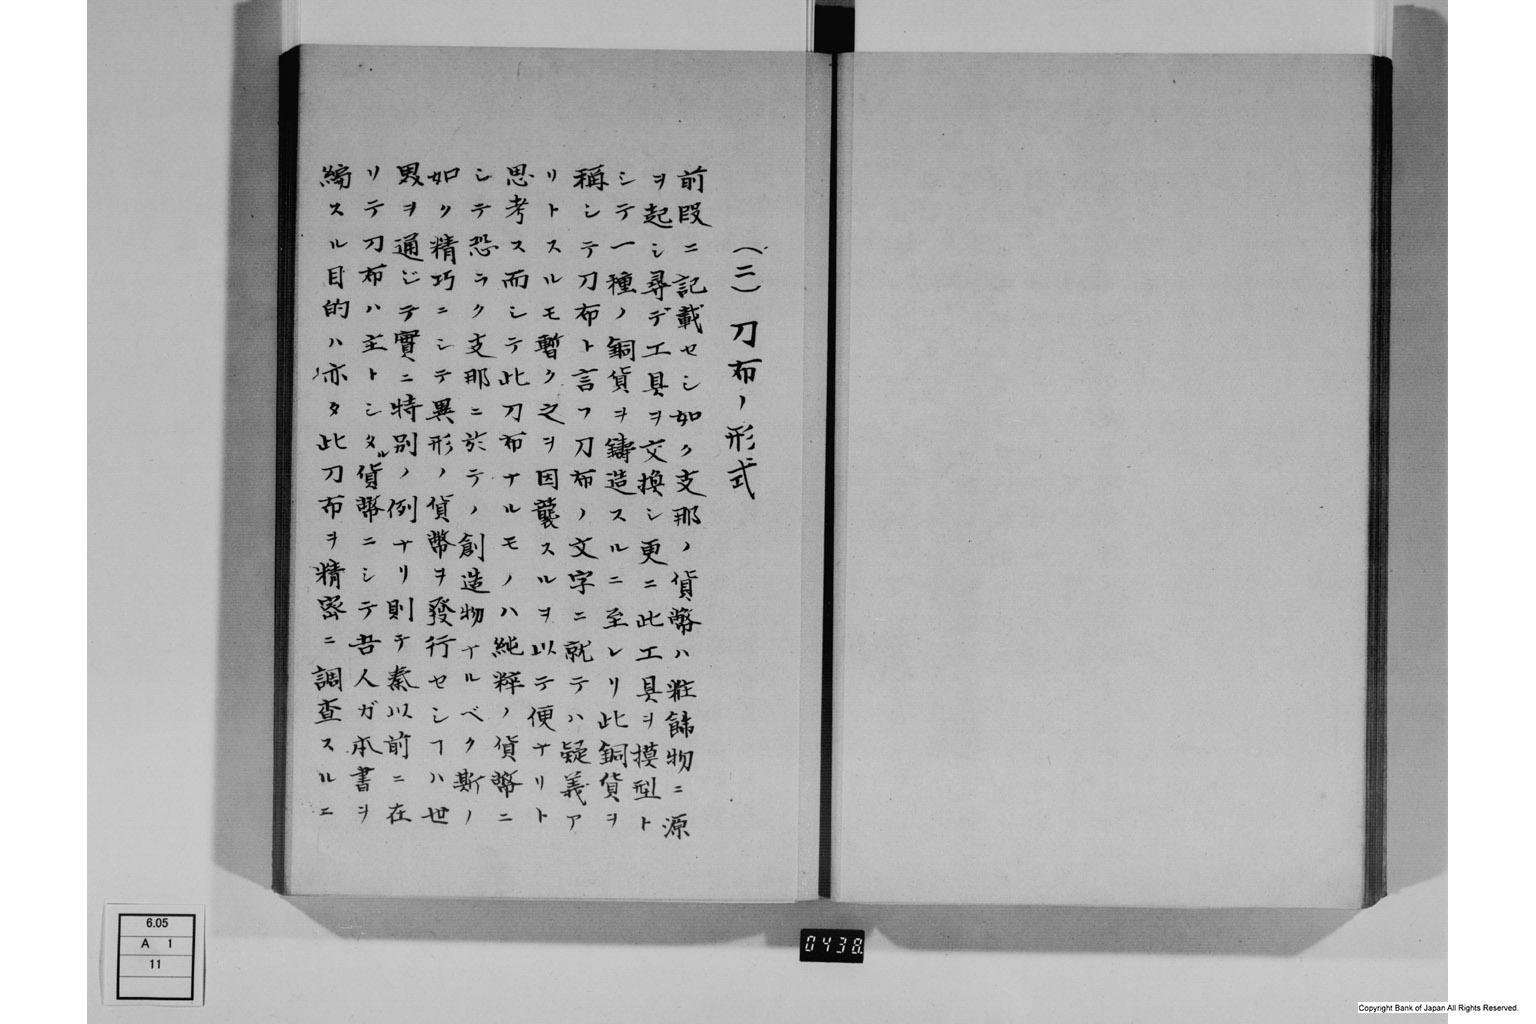 (二)刀布ノ形式
前段ニ記載セシ如ク支那ノ貨幣ハ粧飾物ニ源
ヲ起シ尋デ工具ヲ交換シ更ニ此工具ヲ摸型ト
シテ一種ノ銅貨ヲ鑄造スルニ至レリ此銅貨ヲ
稱シテ刀布ト言フ刀布ノ文字ニ就テハ疑義ア
リトスルモ暫ク之ヲ因襲スルヲ以テ便ナリト
思考ス而シテ此刀布ナルモノハ純粹ノ貨幣ニ
シテ恐ラク支那ニ於テノ創造物ナルベク斯ノ
如ク精巧ニシテ異形ノ貨幣ヲ發行セシヿハ世
界ヲ通ジテ實ニ特別ノ例ナリ則チ秦以前ニ在
リテ刀布ハ主トシタル貨幣ニシテ吾人ガ本書ヲ
編スル目的ハ亦タ此刀布ヲ精密ニ調査スルニ
6.05
A 1
11
0438
Copyright Bank of Japan All Rights Reserved.